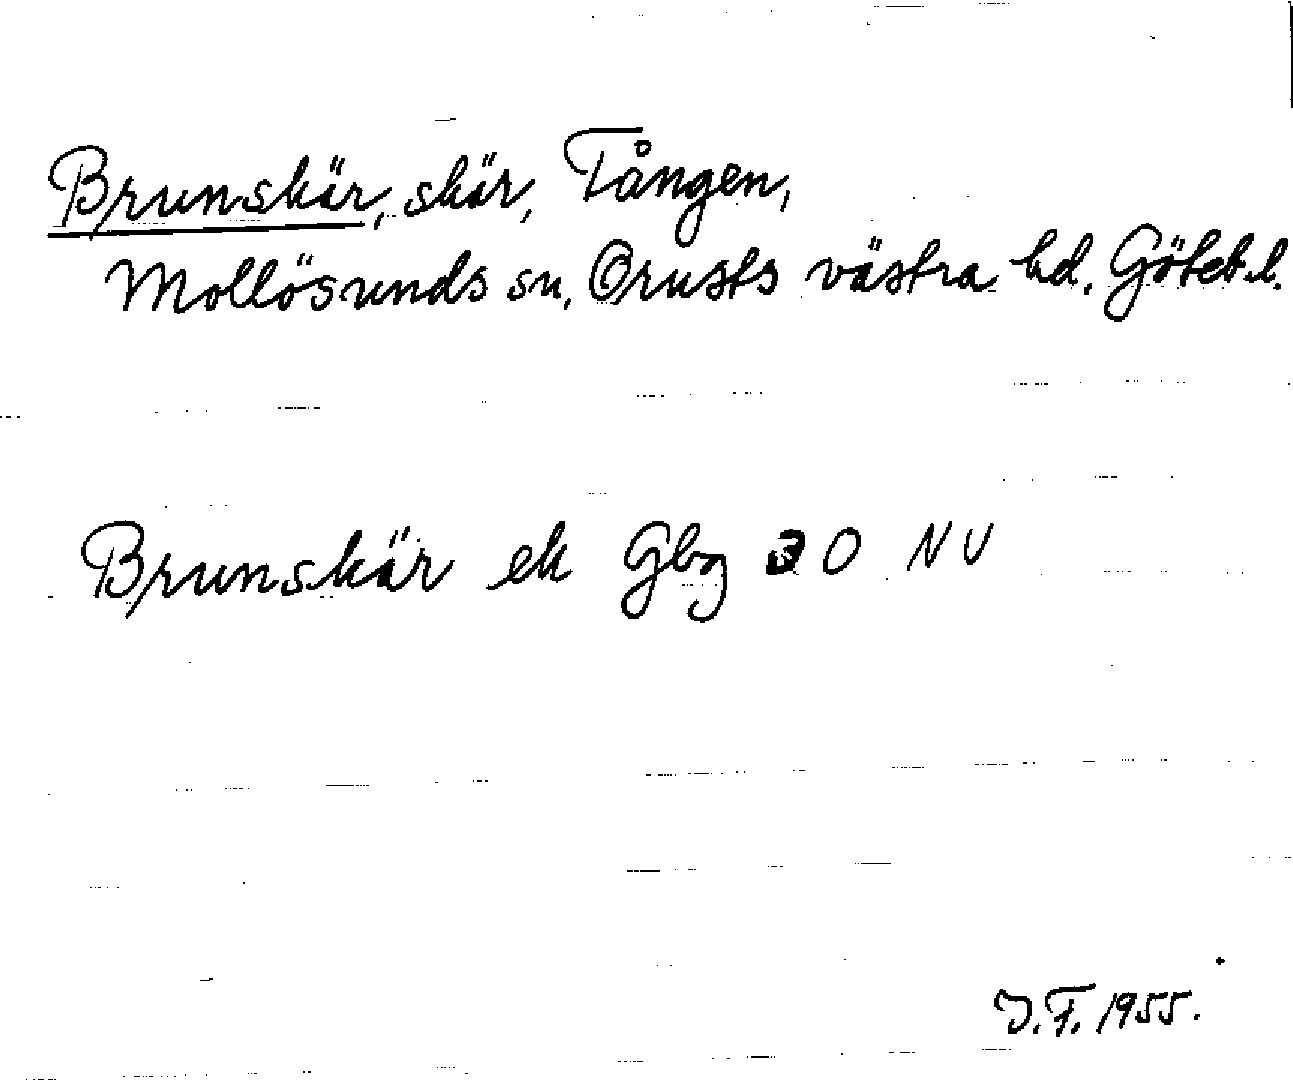 Brunskär, skär, Tången,
Mollösunds sn, Orusts västra hd. Göteb.l.
Brunskär ek Gbg 30 NV
J.F. 1955.